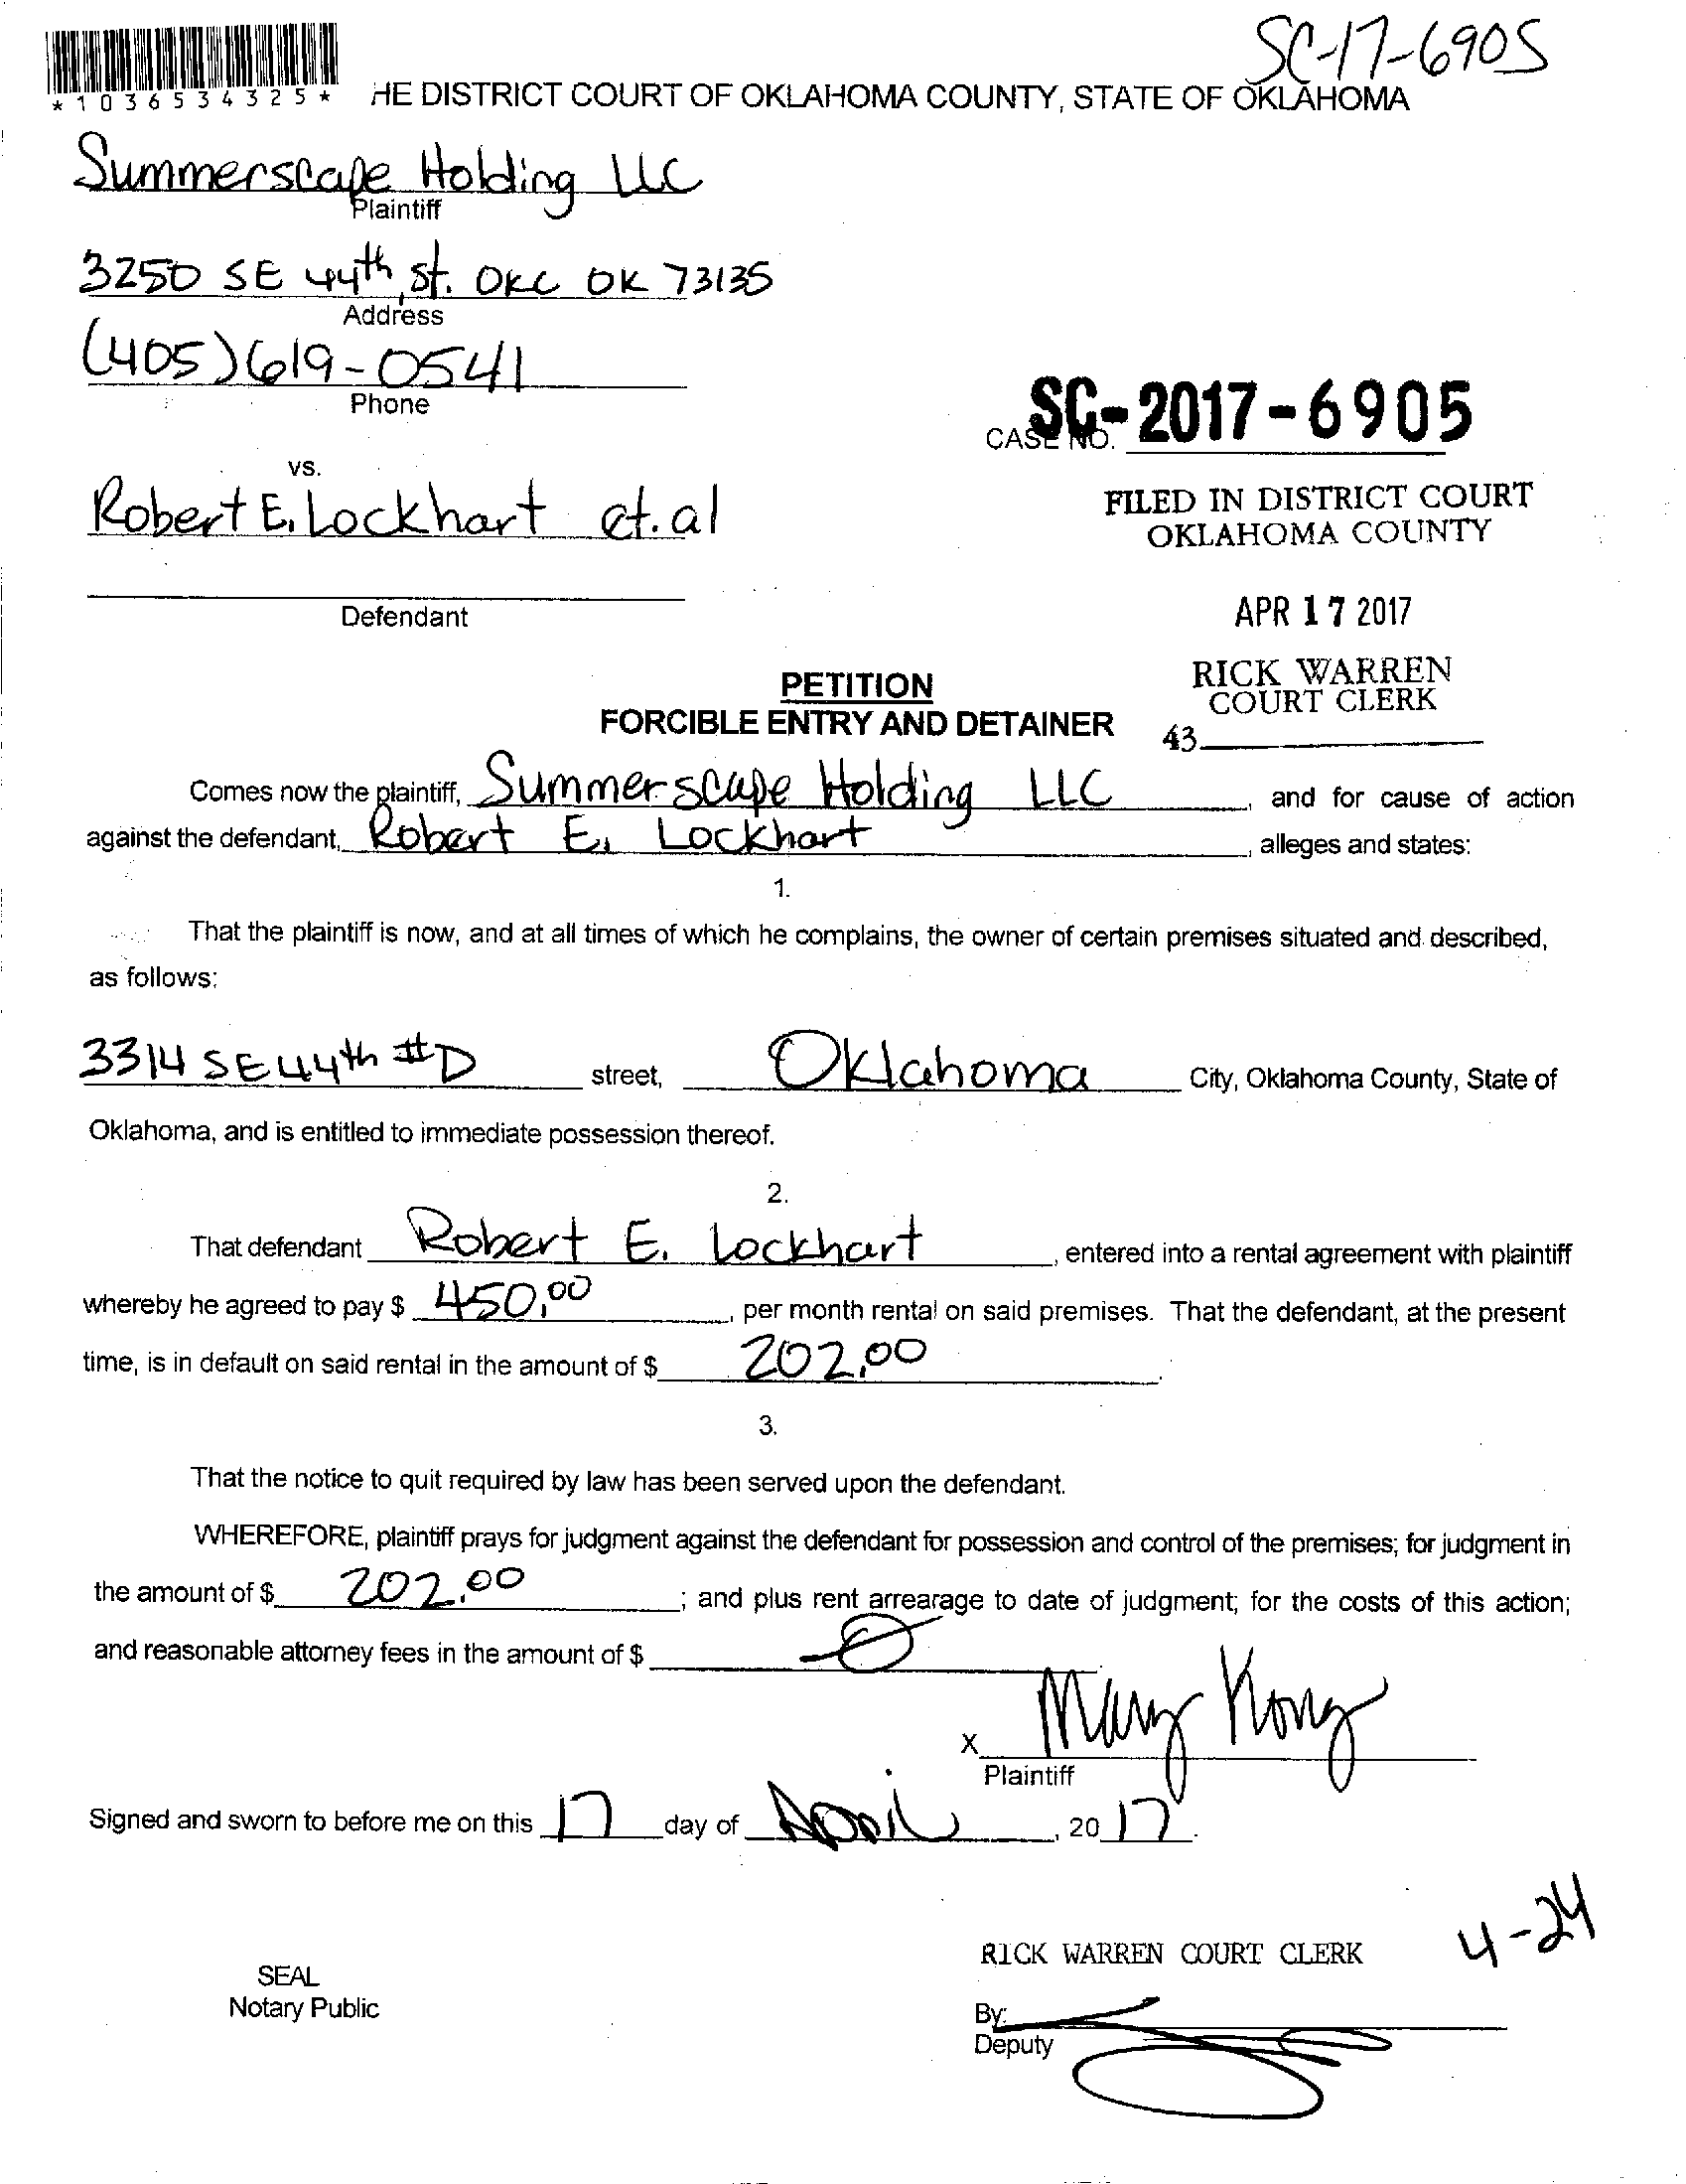 SC-17-6905
*1036534325*
HE DISTRICT COURT OF OKLAHOMA COUNTY, STATE OF OKLAHOMA
Summerscape Holding LLC
Plaintiff
3250 SE 44th St. OKC OK 73135
Address
(405)619-0541
Phone
SC-2017-6905
CASE NO.
vs.
Robert E. Lockhart et. al
FILED IN DISTRICT COURT
OKLAHOMA COUNTY
Defendant
APR 17 2017
RICK WARREN
COURT CLERK
43
PETITION
FORCIBLE ENTRY AND DETAINER
Comes now the plaintiff, Summerscape Holding LLC, and for cause of action
against the defendant, Robert E. Lockhart, alleges and states:
1.
That the plaintiff is now, and at all times of which he complains, the owner of certain premises situated and described,
as follows:
3314 SE 44th #D street, Oklahoma City, Oklahoma County, State of
Oklahoma, and is entitled to immediate possession thereof.
2.
That defendant Robert E. Lockhart, entered into a rental agreement with plaintiff
whereby he agreed to pay $ 450.00, per month rental on said premises. That the defendant, at the present
time, is in default on said rental in the amount of $ 202.00.
3.
That the notice to quit required by law has been served upon the defendant.
WHEREFORE, plaintiff prays for judgment against the defendant for possession and control of the premises; for judgment in
the amount of $ 202.00; and plus rent arrearage to date of judgment; for the costs of this action;
and reasonable attorney fees in the amount of $ 0
X Mary Kong
Plaintiff
Signed and sworn to before me on this 17 day of April, 2017.
4-24
RICK WARREN COURT CLERK
SEAL
Notary Public
By:
Deputy